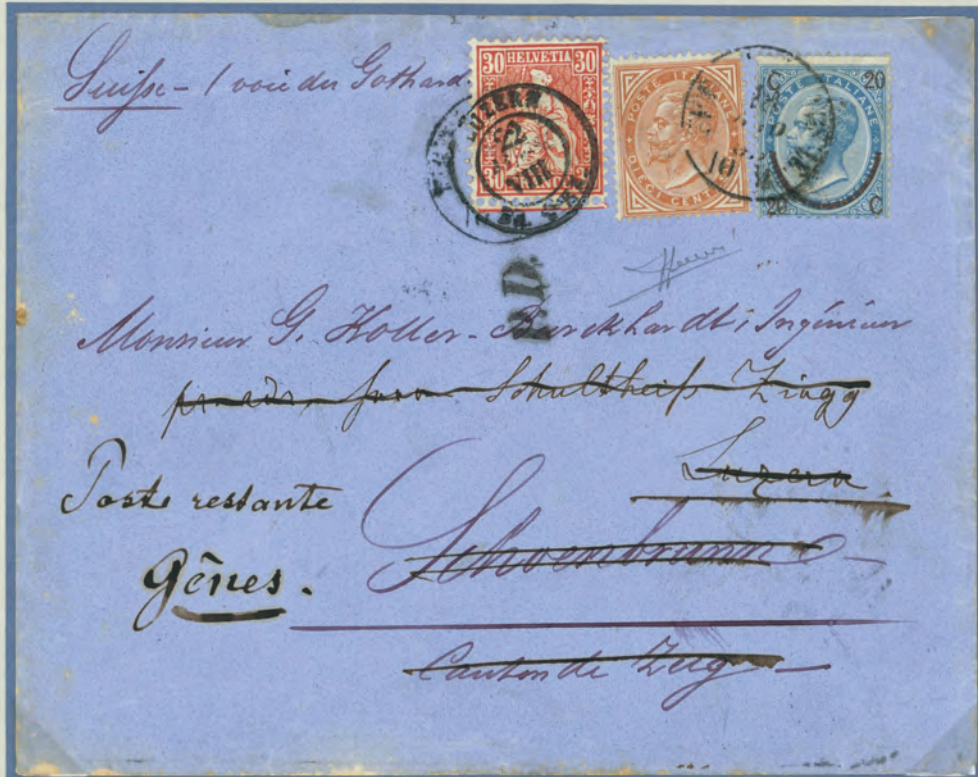 Suisse - / voie du Gothard.
30 HELVETIA 30
30
LUZERN
22
VIII
POSTE ITALIANE
DIECI CENT
10
C 20
POSTE ITALIANE
20 C
P.D.
Monsieur G. Koller-Burckhardt, Ingénieur
Schultheiss Zingg
Luzern.
Poste restante
Schoenbrunn
Gênes.
Canton de Zug